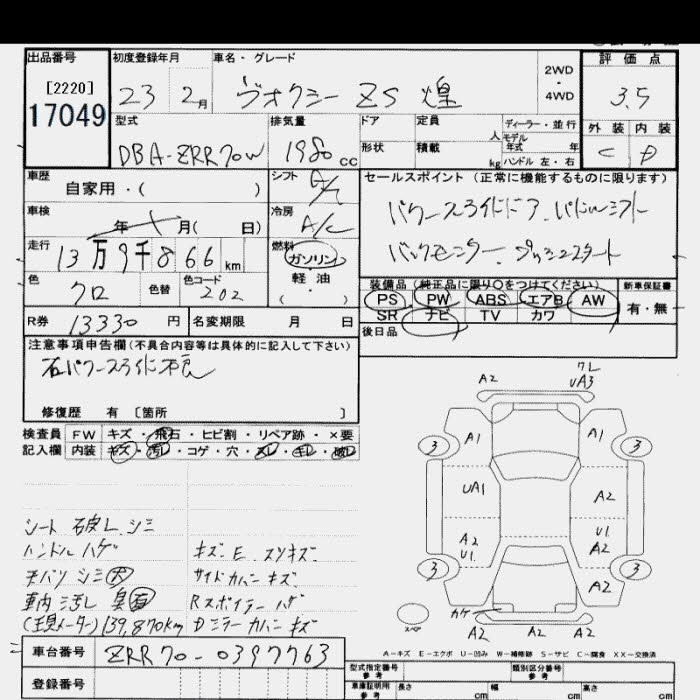 出品番号 初度登録年月 車名・グレード 2WD・4WD 評価点
[2220]
17049 23 2月 ヴォクシー ZS 煌 3.5
型式 排気量 ドア 定員 人 ディーラー・並行 外装 内装
DBA-ZRR70W 1980 cc 形状 積載 kg モデル年式 年 ハンドル 左・右 C D
車歴 自家用・( ) シフト セールスポイント (正常に機能するものに限ります)
車検 年 月( 日) 冷房 A/C パワースライドドア パドルシフト
走行 13万9千866km 燃料 ガソリン 軽油 ・( ) バックモニター プッシュスタート
色 クロ 色替 色コード 202
装備品 (純正品に限り○をつけてください) 新車保証書
PS PW ABS エアB AW 有・無
SR ナビ TV カワ
R券 13330円 名変期限 月 日 後日品
注意事項申告欄(不具合内容等は具体的に記入して下さい)
右パワースライド不良
修復歴 有 [箇所 ]
検査員 FW キズ・飛石・ヒビ割・リペア跡・×要
記入欄 内装
シート 破レ シミ
ハンドル ハゲ キズ・E スリキズ
天バリ シミ大 サイドカバー キズ
車内 汚レ 臭有 Rスポイラー ハゲ
(現メーター)139,870km Dミラーカバー キズ
車台番号 ZRR70-0397763
登録番号
ワレ
A2 UA3
3 A1 A1 3
UA1 A2
A2 U1 U1 A2
3 A2 3
カケ
スペア A2 A2 A2
A-キズ E-エクボ U-凹み W-補修跡 S-サビ C-腐食 XX-交換済
型式指定番号 参考 類別区分番号 参考
車庫証明用 参考 長さ cm 幅 cm 高さ cm